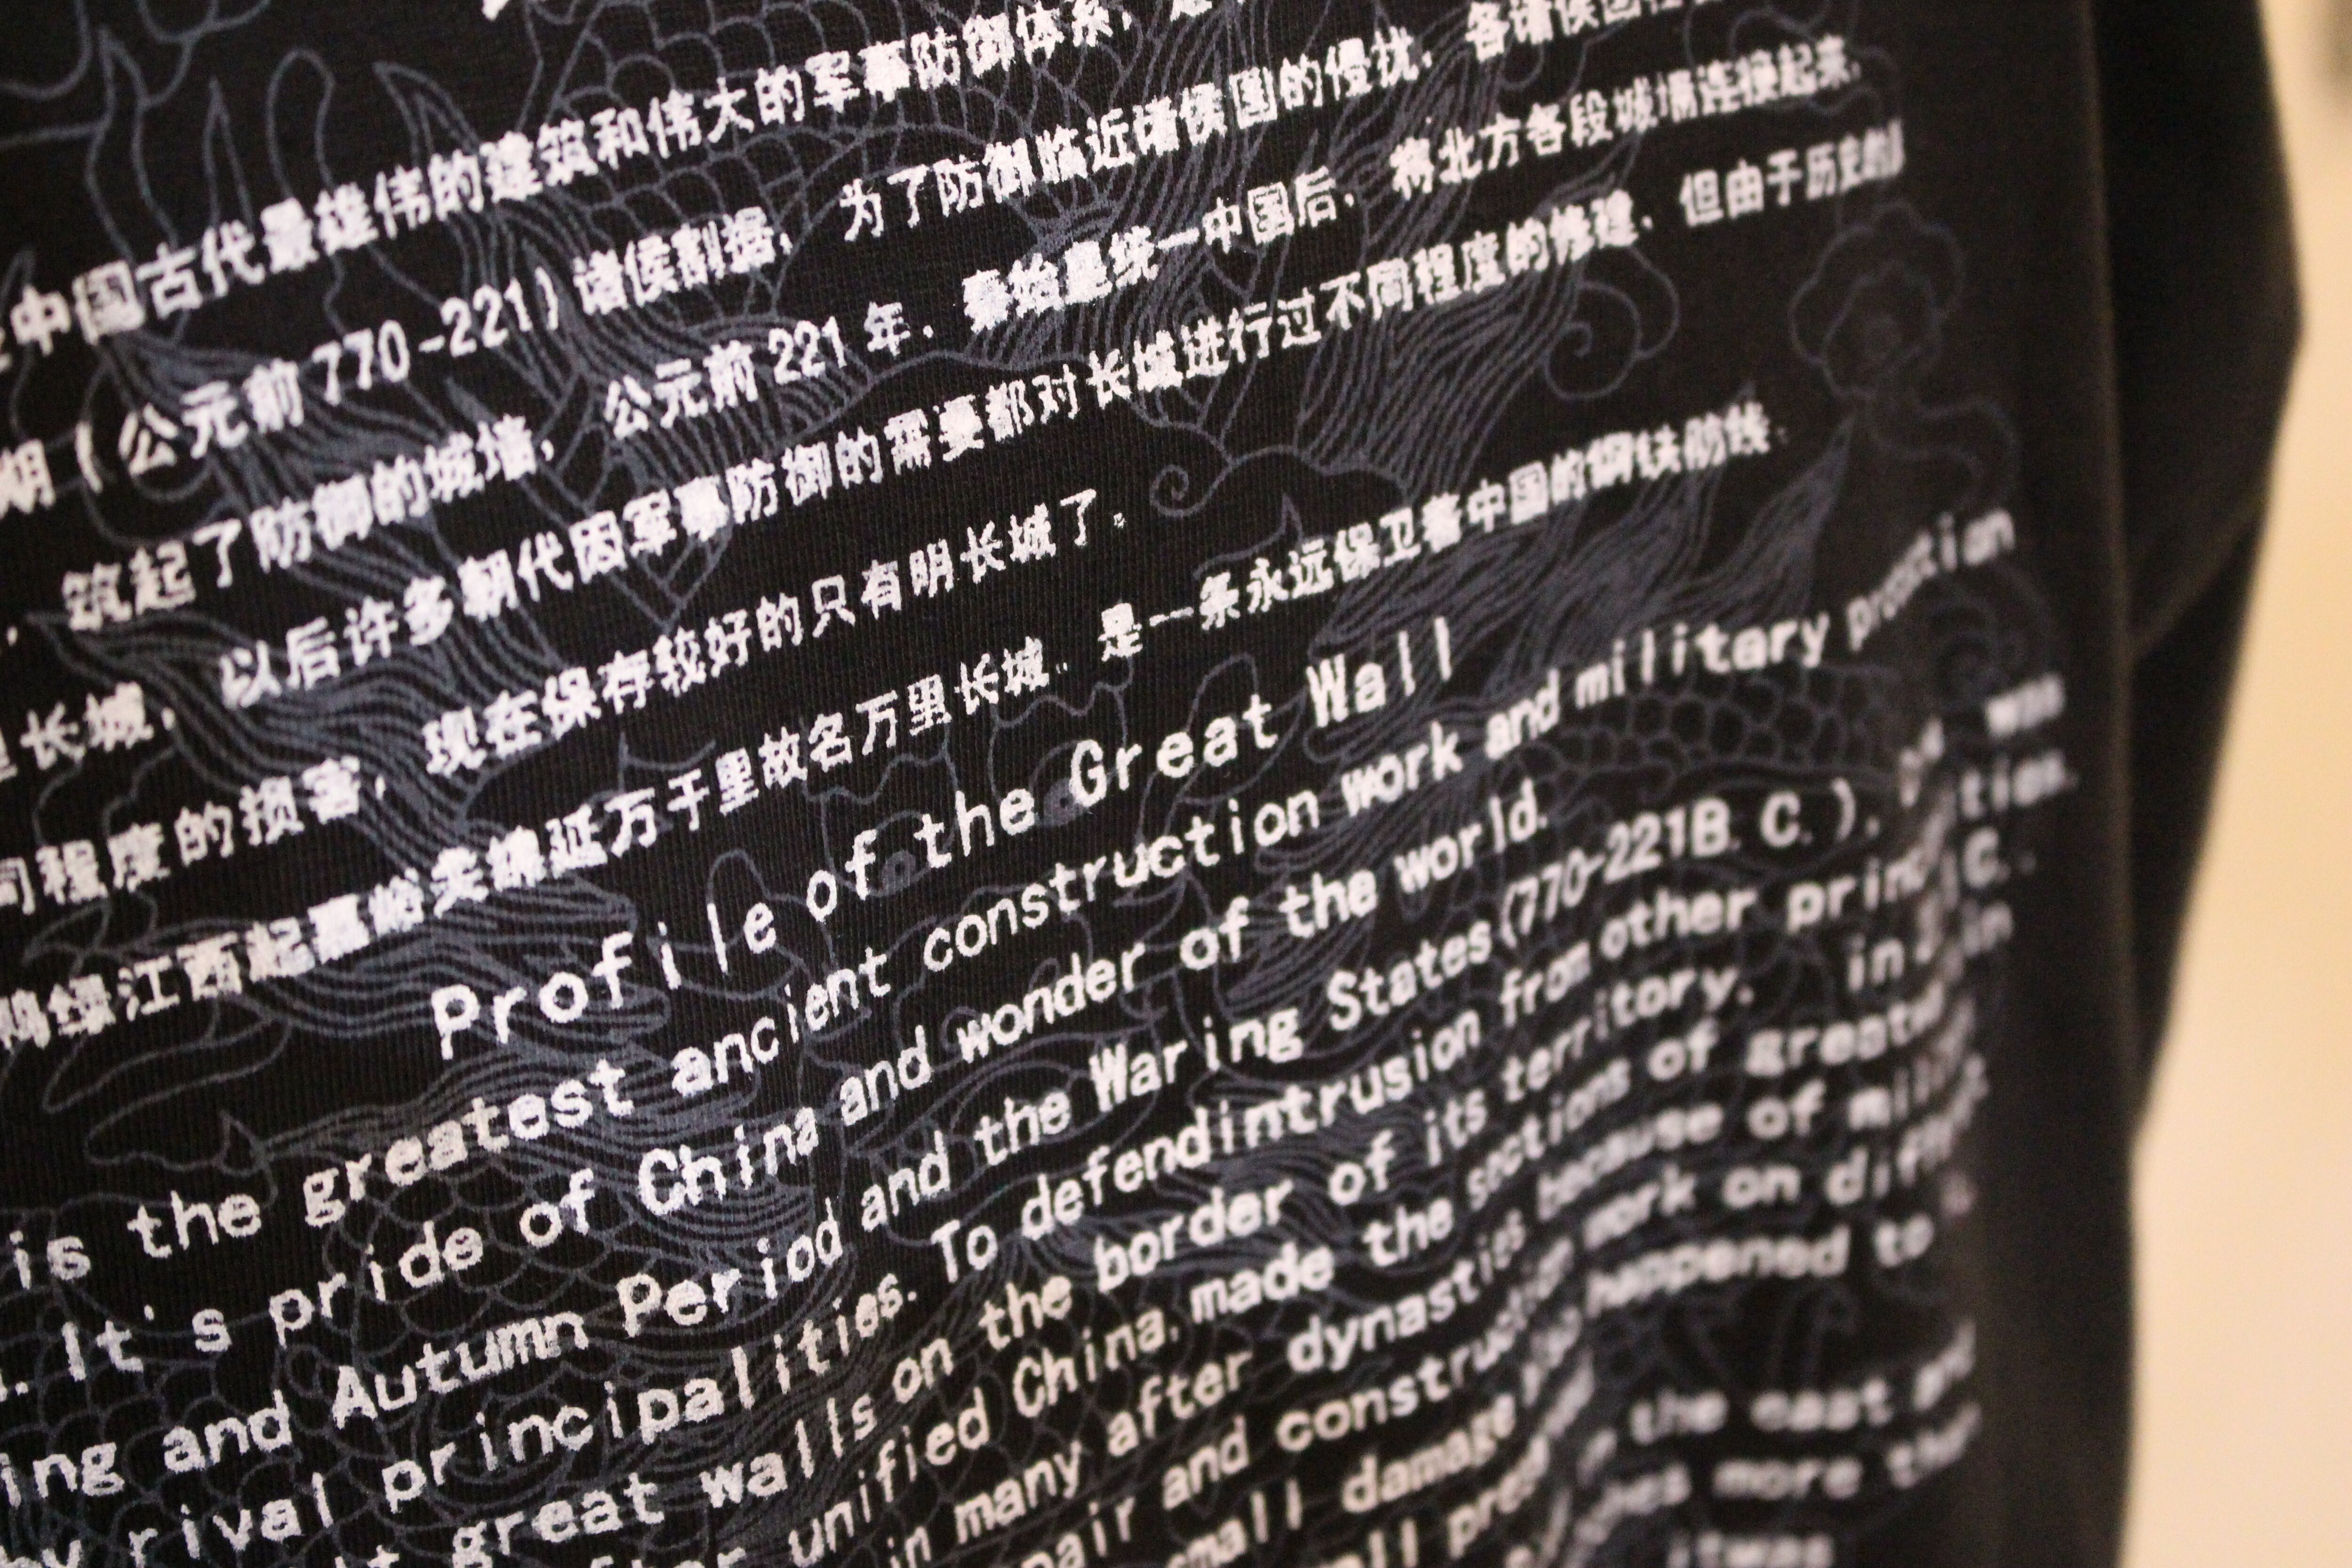 中国古代最雄伟的建筑和伟大的军事防御体系,是
期(公元前770-221)诸侯割据,为了防御临近诸侯国的侵扰,各诸侯国
,筑起了防御的城墙,公元前221年,秦始皇统一中国后,将北方各段城墙连接起来,
里长城,以后许多朝代因军事防御的需要都对长城进行过不同程度的修建,但由于历史的
同程度的损害,现在保存较好的只有明长城了。
鸭绿江西起嘉峪关绵延万千里故名万里长城,是一条永远保卫着中国的钢铁防线。
Profile of the Great Wall
is the greatest ancient construction work and military
. It's pride of China and wonder of the world.
ing and Autumn Period and the Waring States(770-221B.C.), was
by rival principalities. To defendintrusion from other
great walls on the border of its territory. in
unified China, made the sections of
in many after dynasties because of
pair and construction work on
small damage happened to
the east and
more than
itwas